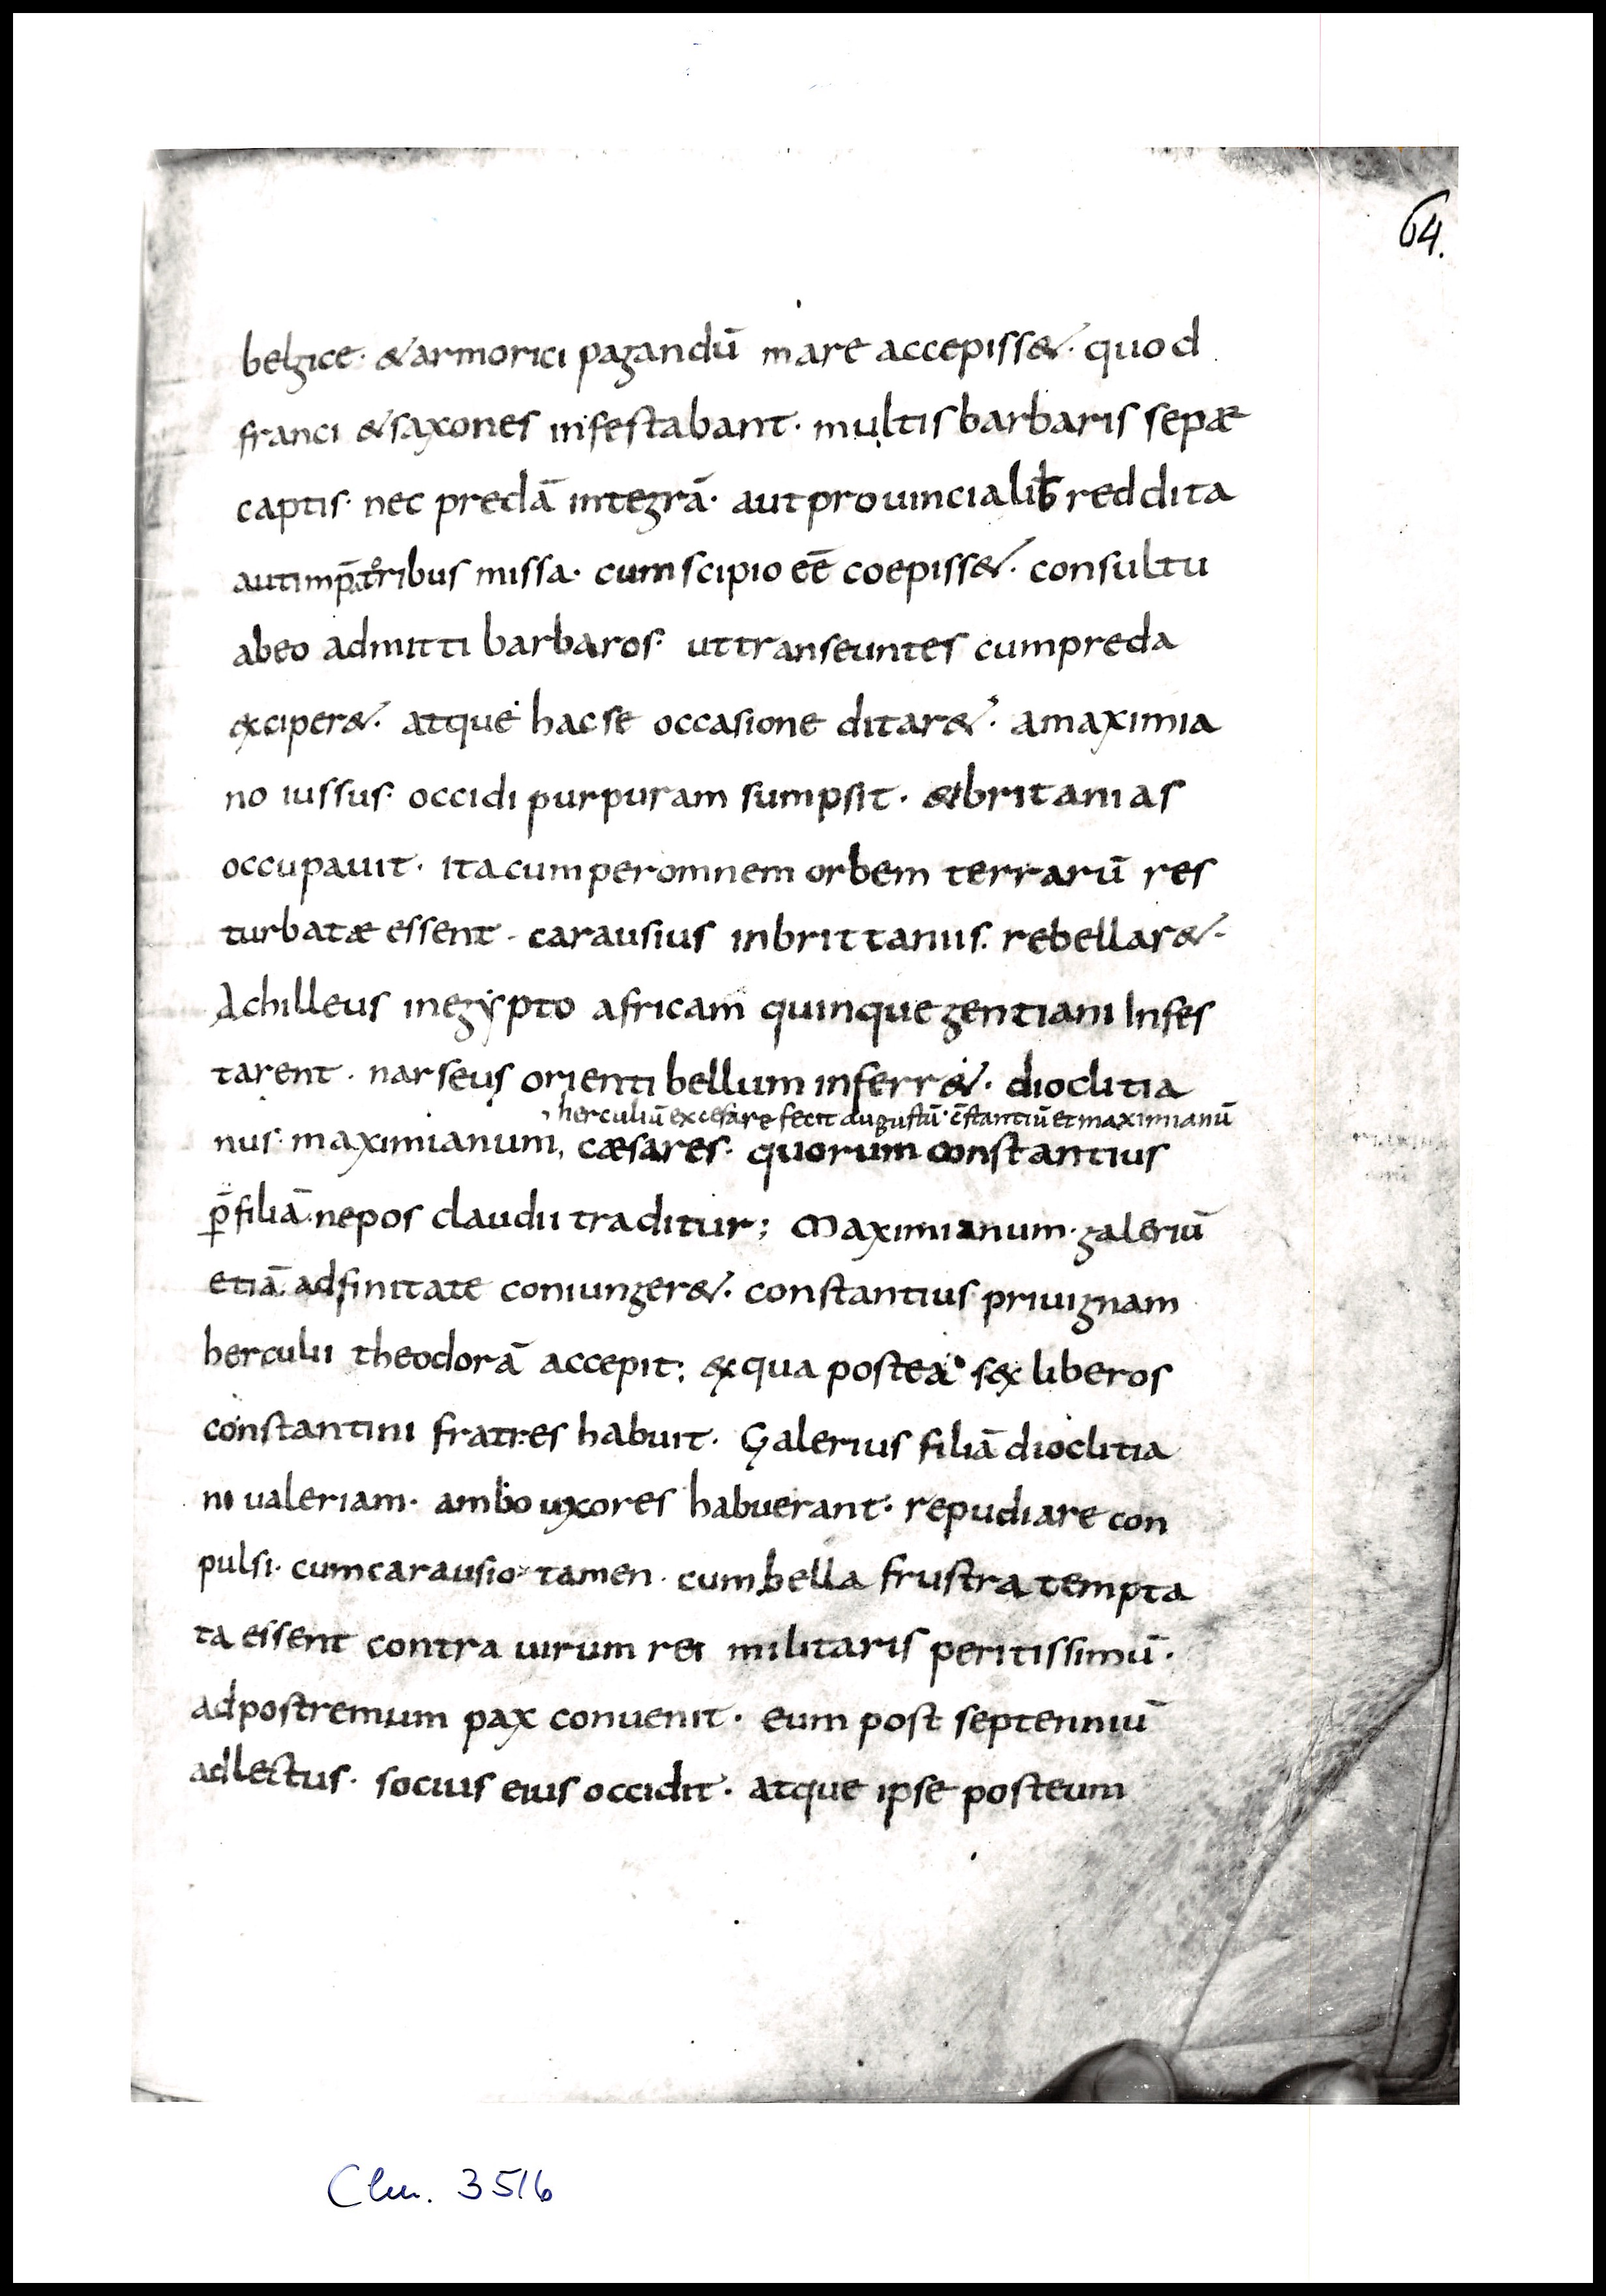 64.
belgice· & armorici pagandū mare accepiss&· quod
franci & saxones infestabant· multis barbaris sepæ
captis· nec predā integrā· aut prouincialib; reddita
aut imp̄atoribus missa· cum scipio eē coepiss&· consultu
abeo admitti barbaros· ut transeuntes cum preda
exciper&· atque hac se occasione ditar&· a maximia
no iussus· occidi purpuram sumpsit· & britanias
occupauit· ita cum per omnem orbem terrarū res
turbatæ essent· carausius in brittaniis· rebellar&·
Achilleus in egẏpto africam quinque gentiani Infes
tarent· narseus orienti bellum inferr&· dioclitia
herculiū ex cesare fecit augustū· c̄stantiū et maximianū
nus· maximianum, cæsares· quorum constantius
p̄ filiā· nepos claudii traditur; Maximianum· galeriū
etiā adfinitate coniunger&· constantius priuignam
herculii theodorā accepit; ex qua postea· sex liberos
constantini fratres habuit· Galerius filiā dioclitia
ni ualeriam· ambo uxores habuerant· repudiare con
pulsi· cum carausio· tamen· cum bella frustra tempta
ta essent contra uirum rei militaris peritissimū·
ad postremum pax conuenit· eum post septenniū
adlectus· socius eius occidit· atque ipse post eum
Clm. 3516